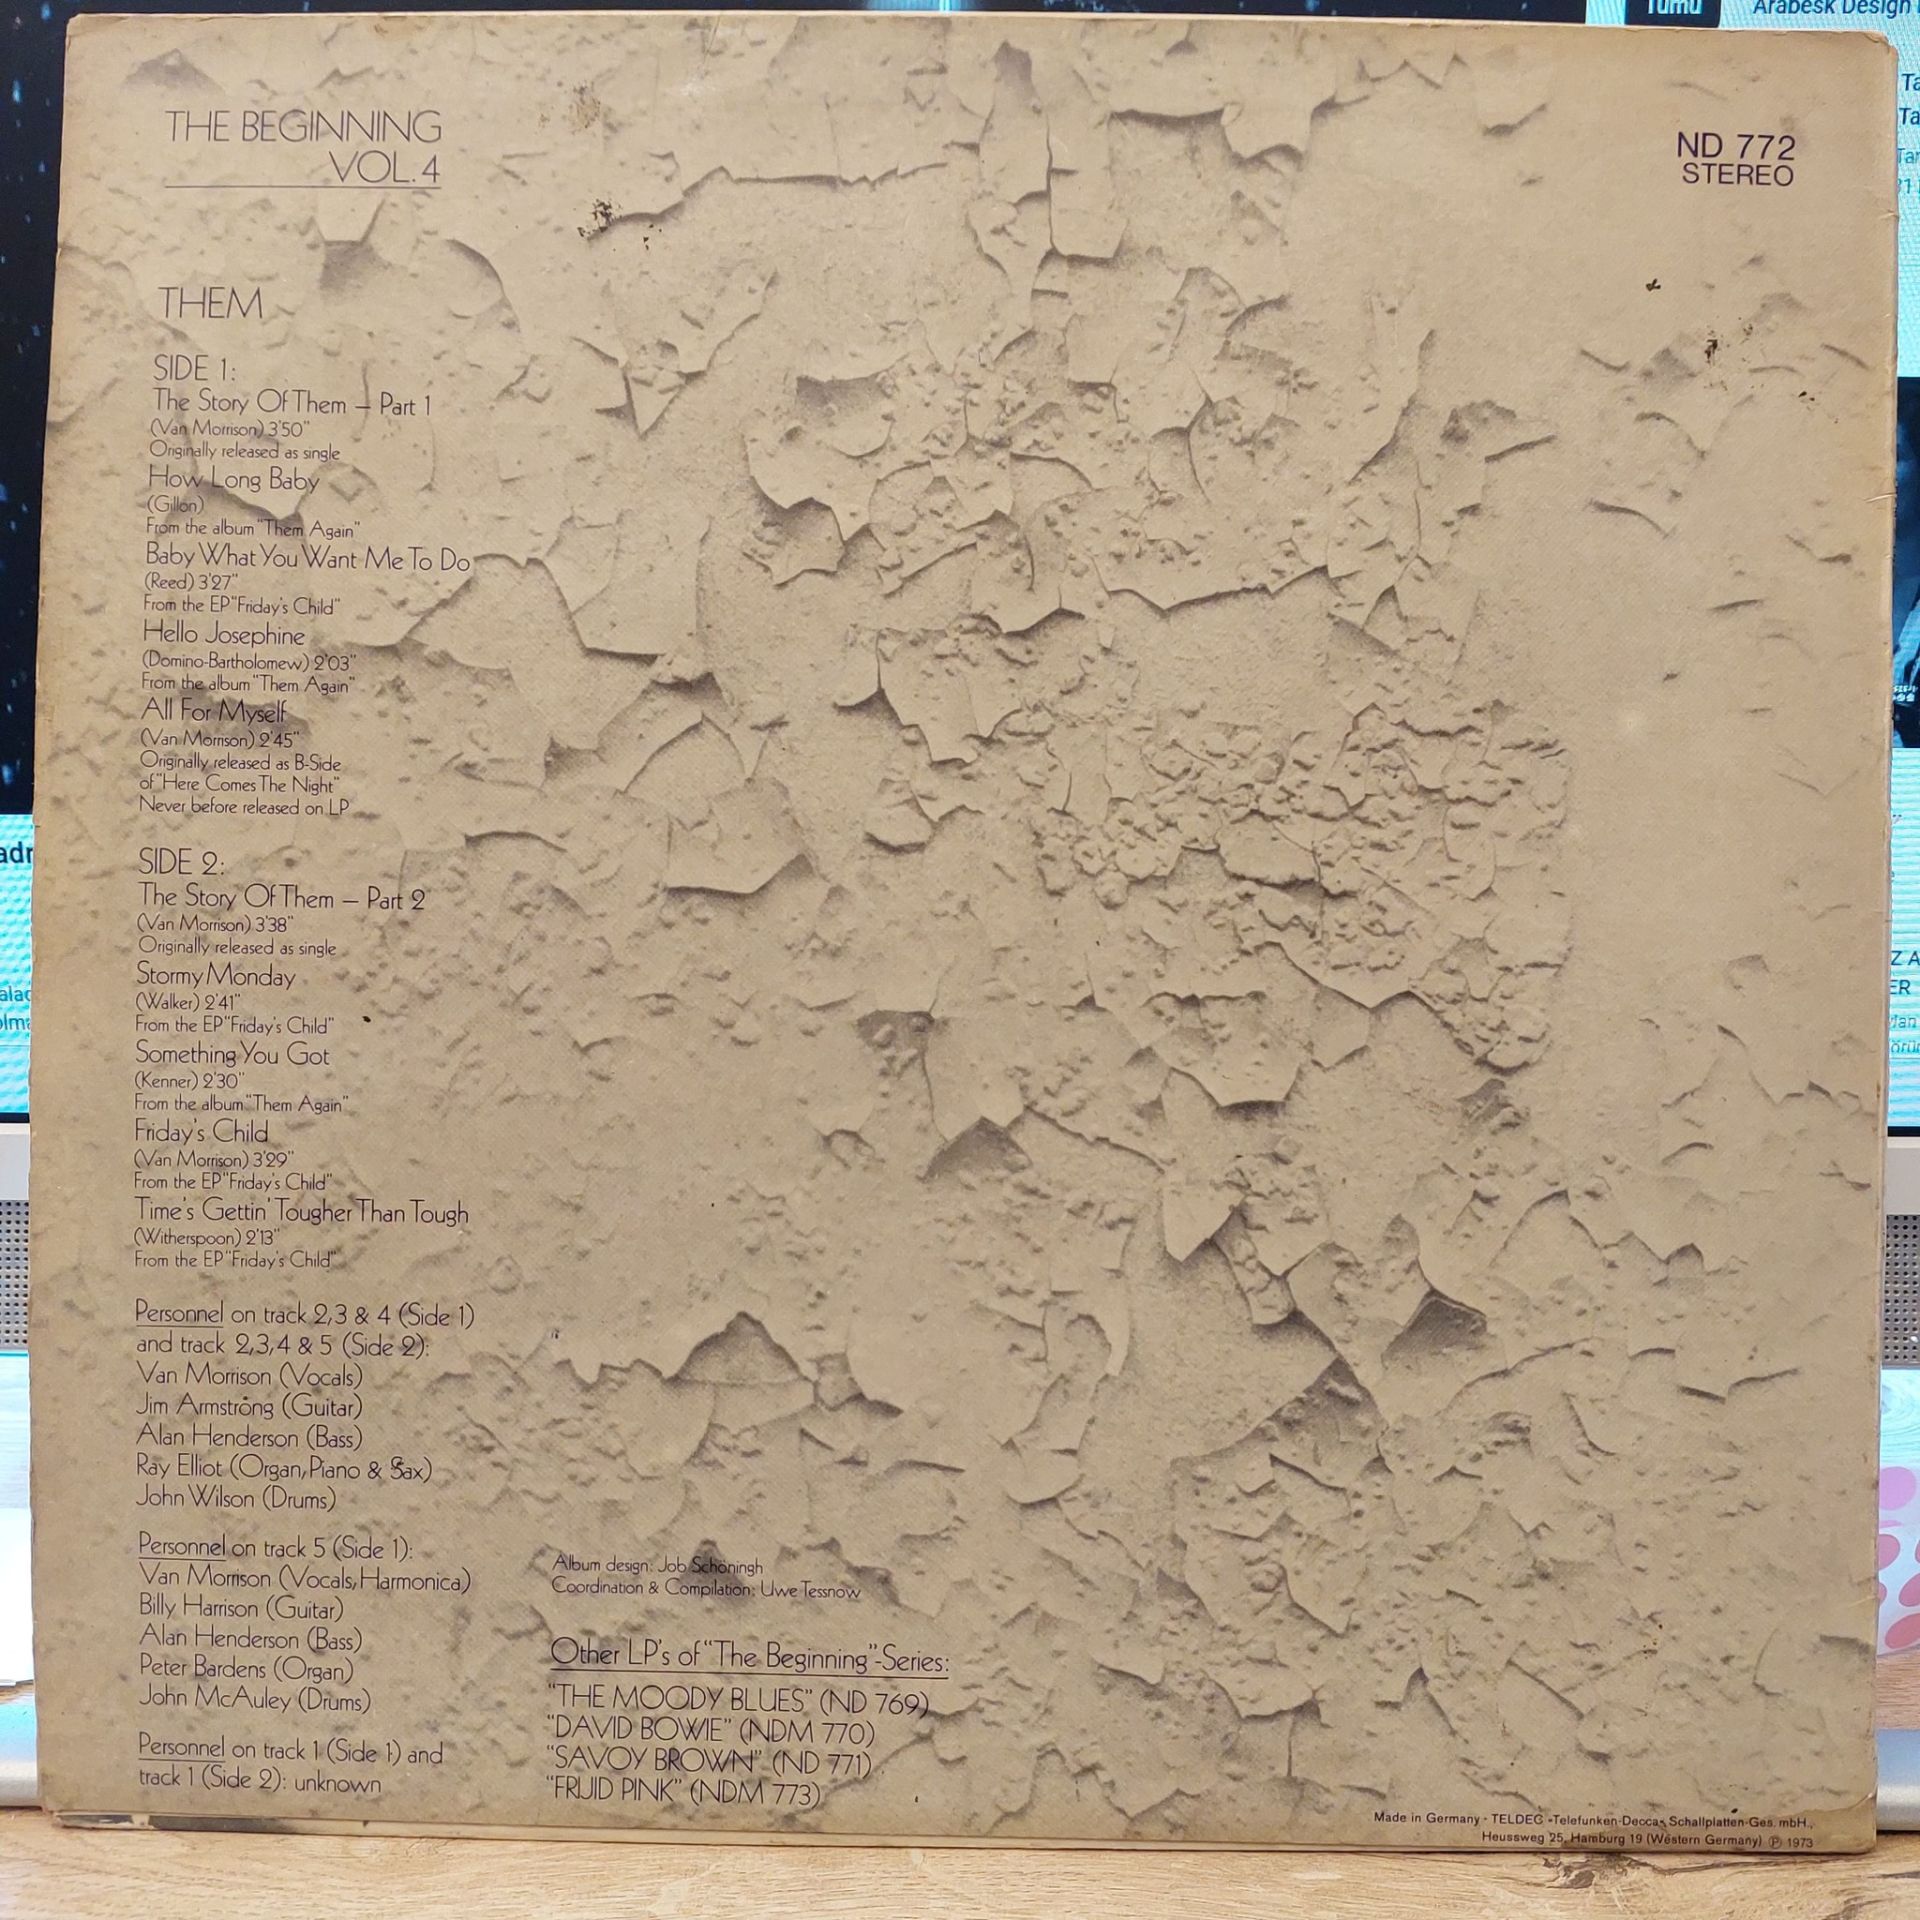 THE BEGINNING
VOL. 4
ND 772
STEREO
THEM
SIDE 1:
The Story Of Them – Part 1
(Van Morrison) 3'50"
Originally released as single
How Long Baby
(Gillon)
From the album "Them Again"
Baby What You Want Me To Do
(Reed) 3'27"
From the EP "Friday's Child"
Hello Josephine
(Domino-Bartholomew) 2'03"
From the album "Them Again"
All For Myself
(Van Morrison) 2'45"
Originally released as B-Side
of "Here Comes The Night"
Never before released on LP
SIDE 2:
The Story Of Them – Part 2
(Van Morrison) 3'38"
Originally released as single
Stormy Monday
(Walker) 2'41"
From the EP "Friday's Child"
Something You Got
(Kenner) 2'30"
From the album "Them Again"
Friday's Child
(Van Morrison) 3'29"
From the EP "Friday's Child"
Time's Gettin' Tougher Than Tough
(Witherspoon) 2'13"
From the EP "Friday's Child"
Personnel on track 2,3 & 4 (Side 1)
and track 2,3,4 & 5 (Side 2):
Van Morrison (Vocals)
Jim Armstrong (Guitar)
Alan Henderson (Bass)
Ray Elliot (Organ, Piano & Sax)
John Wilson (Drums)
Personnel on track 5 (Side 1):
Van Morrison (Vocals, Harmonica)
Billy Harrison (Guitar)
Alan Henderson (Bass)
Peter Bardens (Organ)
John McAuley (Drums)
Personnel on track 1 (Side 1) and
track 1 (Side 2): unknown
Album design: Job Schöningh
Coordination & Compilation: Uwe Tessnow
Other LP's of "The Beginning"-Series:
"THE MOODY BLUES" (ND 769)
"DAVID BOWIE" (NDM 770)
"SAVOY BROWN" (ND 771)
"FRIJID PINK" (NDM 773)
Made in Germany · TELDEC »Telefunken-Decca« Schallplatten-Ges. mbH.,
Heussweg 25, Hamburg 19 (Western Germany) ℗ 1973
Arabesk Design